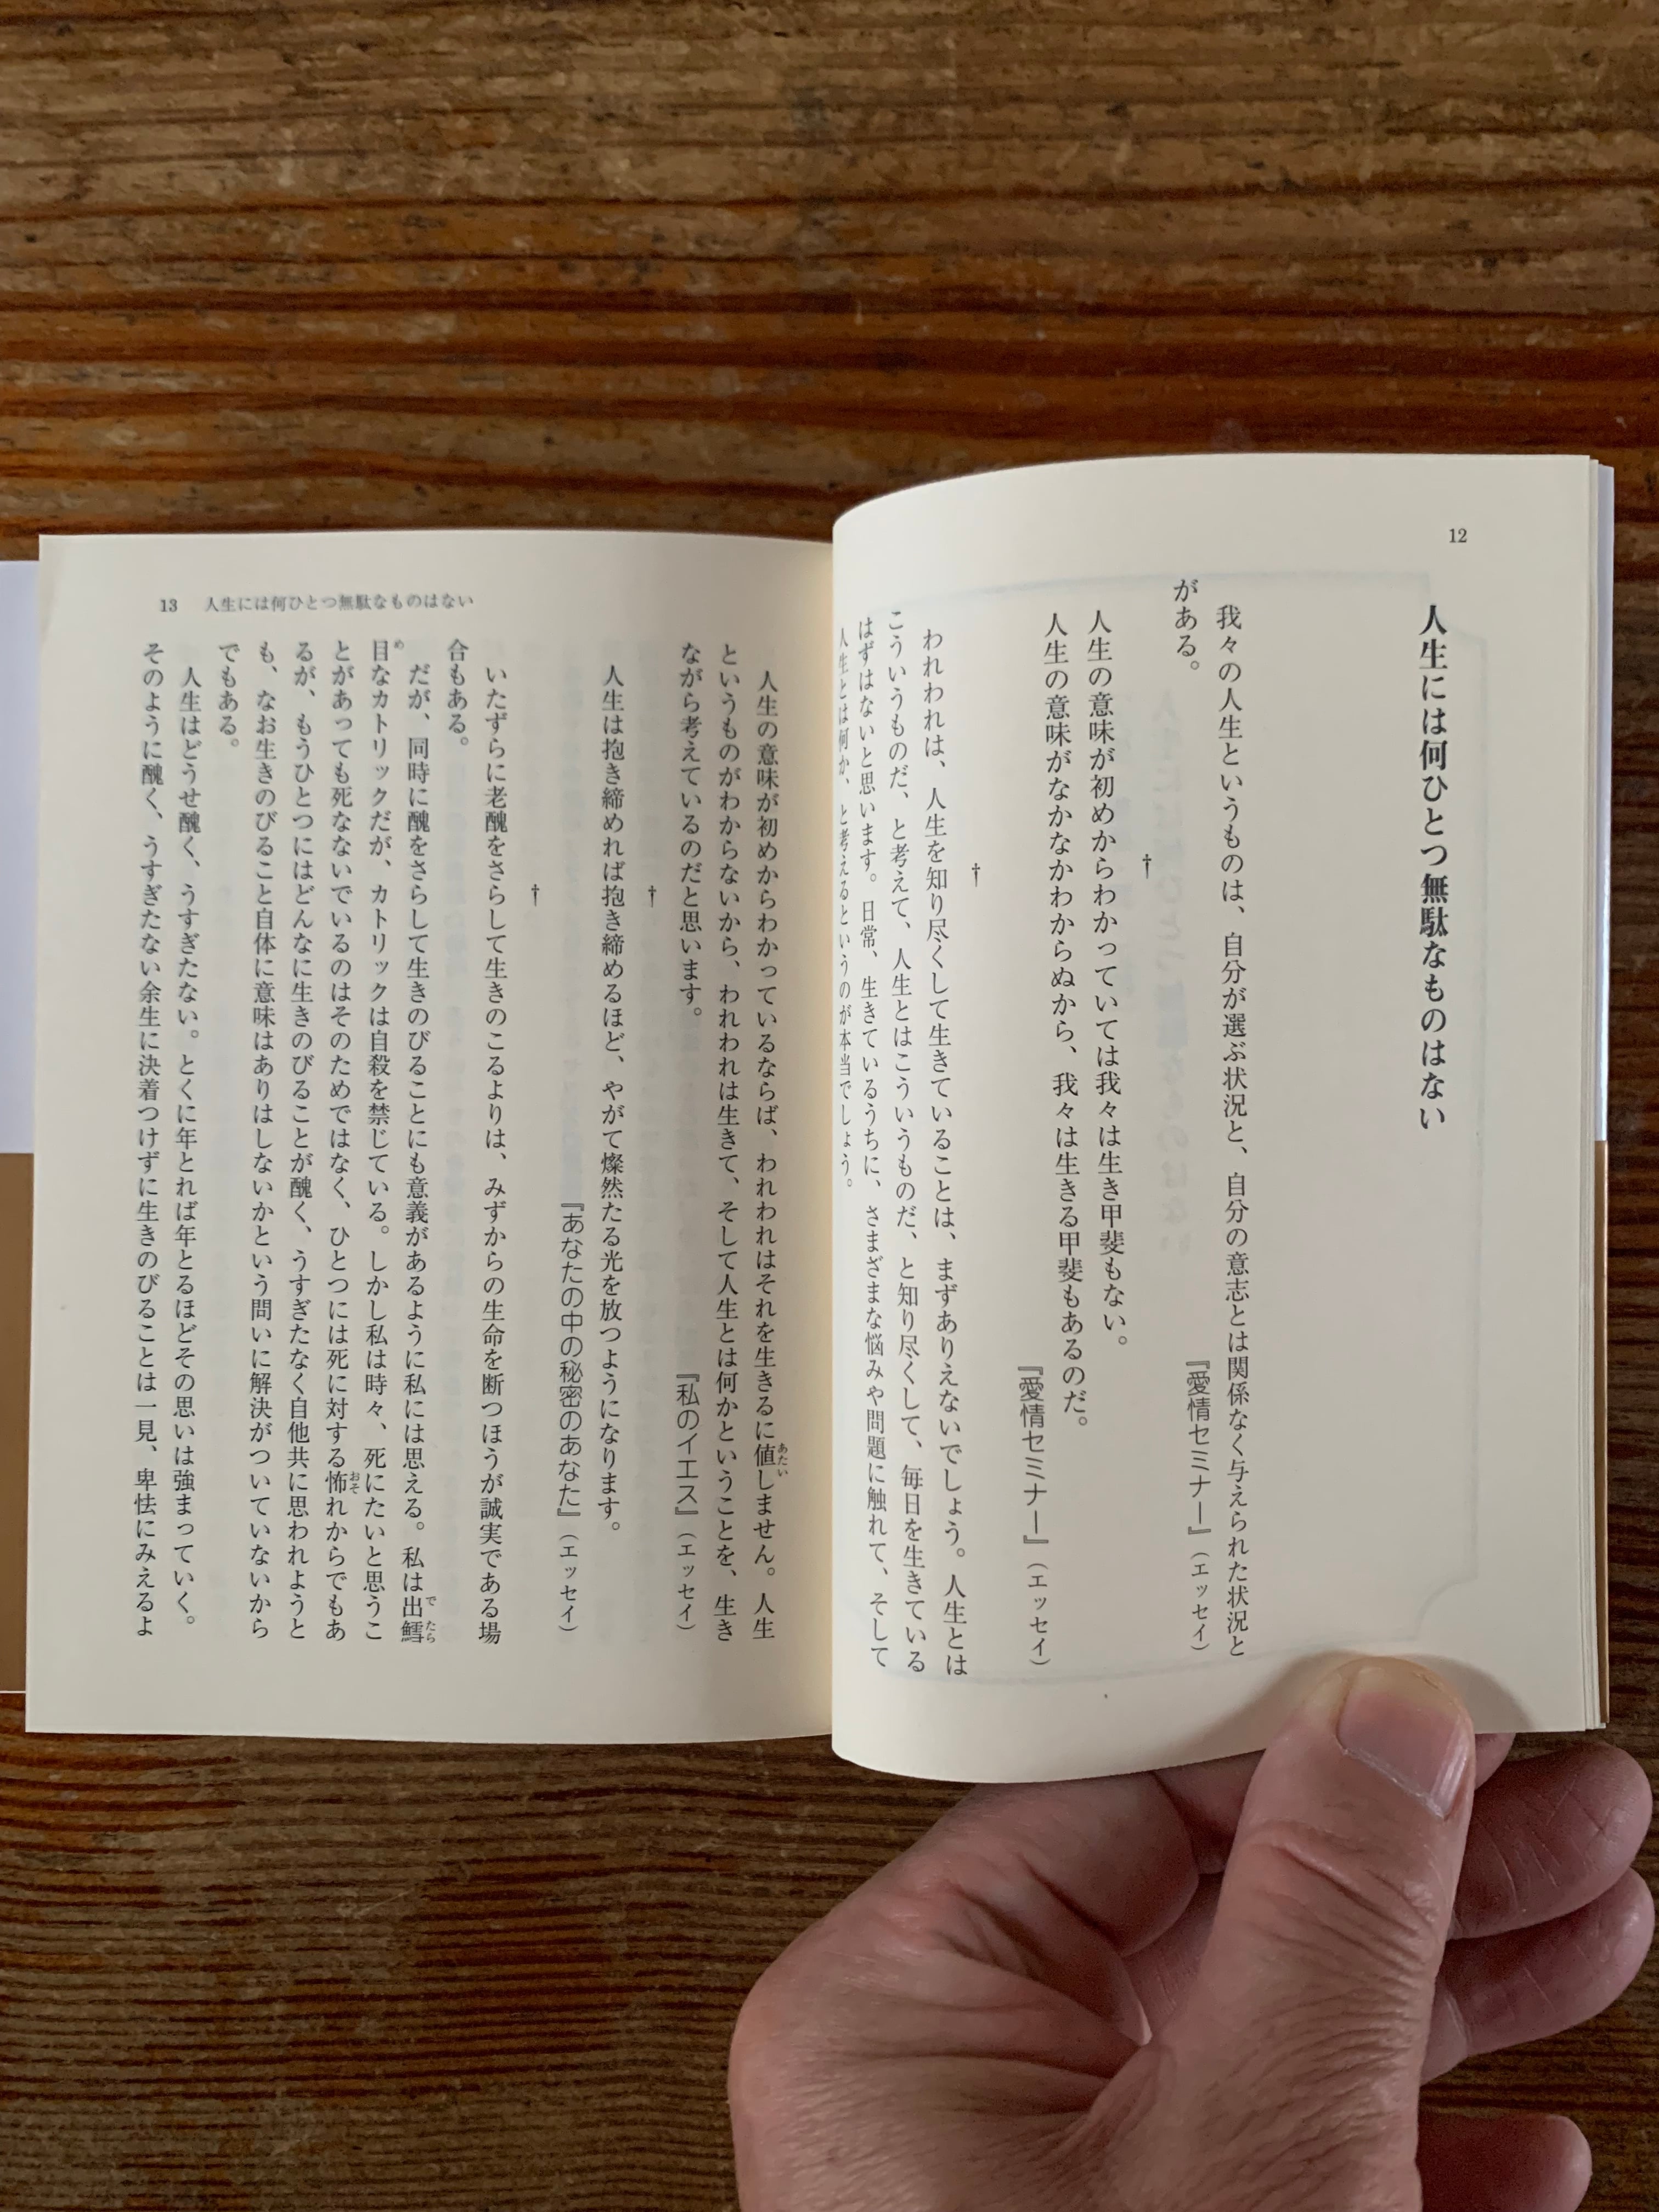 12
人生には何ひとつ無駄なものはない
我々の人生というものは、自分が選ぶ状況と、自分の意志とは関係なく与えられた状況と
がある。
『愛情セミナー』（エッセイ）
†
人生の意味が初めからわかっていては我々は生き甲斐もない。
人生の意味がなかなかわからぬから、我々は生きる甲斐もあるのだ。
『愛情セミナー』（エッセイ）
†
われわれは、人生を知り尽くして生きていることは、まずありえないでしょう。人生とは
こういうものだ、と考えて、人生とはこういうものだ、と知り尽くして、毎日を生きている
はずはないと思います。日常、生きているうちに、さまざまな悩みや問題に触れて、そして
人生とは何か、と考えるというのが本当でしょう。
13 人生には何ひとつ無駄なものはない
人生の意味が初めからわかっているならば、われわれはそれを生きるに値しません。人生
あたい
というものがわからないから、われわれは生きて、そして人生とは何かということを、生き
ながら考えているのだと思います。
『私のイエス』（エッセイ）
†
人生は抱き締めれば抱き締めるほど、やがて燦然たる光を放つようになります。
『あなたの中の秘密のあなた』（エッセイ）
†
いたずらに老醜をさらして生きのこるよりは、みずからの生命を断つほうが誠実である場
合もある。
だが、同時に醜をさらして生きのびることにも意義があるように私には思える。私は出鱈
でたら
目なカトリックだが、カトリックは自殺を禁じている。しかし私は時々、死にたいと思うこ
め
とがあっても死なないでいるのはそのためではなく、ひとつには死に対する怖れからでもあ
おそ
るが、もうひとつにはどんなに生きのびることが醜く、うすぎたなく自他共に思われようと
も、なお生きのびること自体に意味はありはしないかという問いに解決がついていないから
でもある。
人生はどうせ醜く、うすぎたない。とくに年とれば年とるほどその思いは強まっていく。
そのように醜く、うすぎたない余生に決着つけずに生きのびることは一見、卑怯にみえるよ